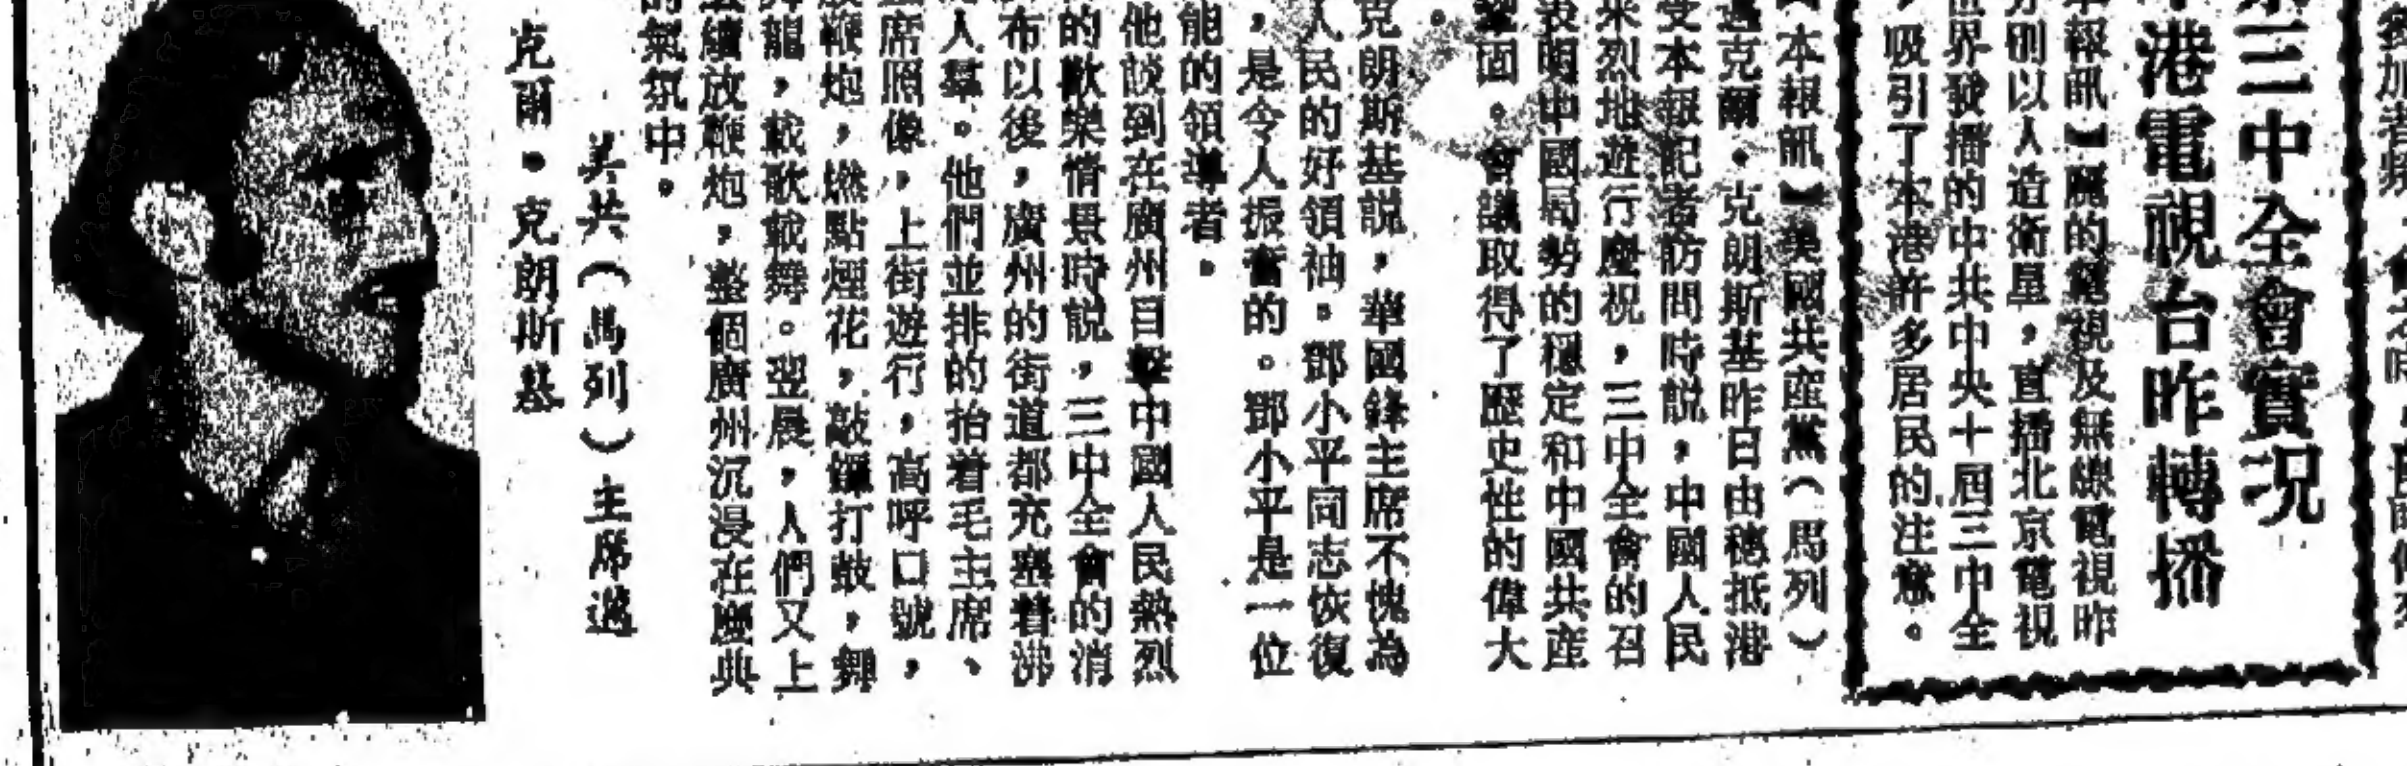 參加者
三中全會實況
港電視台昨轉播
本報訊】麗的電視及無線電視昨
分別以人造衛星，直播北京電視
世界發播的中共中央十屆三中全
，吸引了本港許多居民的注意。
【本報訊】美國共產黨（馬列）
邁克爾．克朗斯基昨日由穗抵港
受本報記者訪問時說，中國人民
烈地遊行慶祝，三中全會的召
表明中國局勢的穩定和中國共產
面。會議取得了歷史性的偉大
克朗斯基說，華國鋒主席不愧為
人民的好領袖。鄧小平同志恢復
，是令人振奮的。鄧小平是一位
能的領導者。
他談到在廣州目擊中國人民熱烈
的歡樂情景時說，三中全會的消
布以後，廣州的街道都充塞着沸
人羣。他們並排的抬着毛主席、
席照像，上街遊行，高呼口號，
鞭炮，燃點煙花，敲鑼打鼓，舞
龍，載歌載舞。翌晨，人們又上
繼續放鞭炮，整個廣州沉浸在慶典
的氣氛中。
美共（馬列）主席邁
克爾．克朗斯基